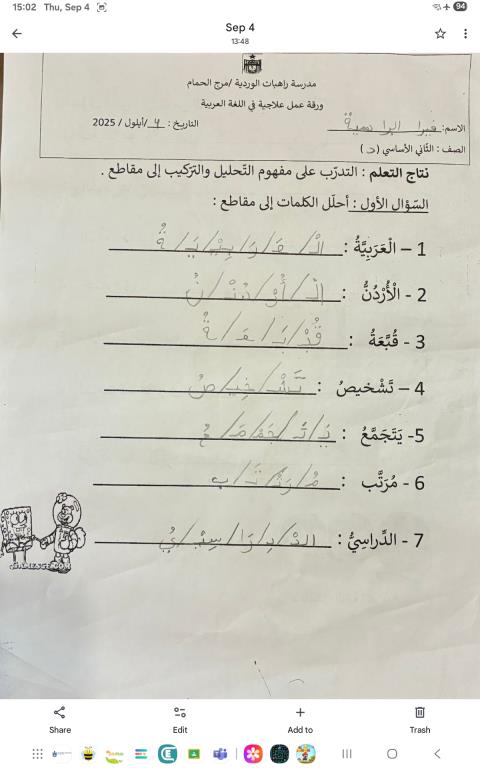 15:02 Thu, Sep 4
94
Sep 4
13:48
مدرسة راهبات الوردية /مرج الحمام
ورقة عمل علاجية في اللغة العربية
الاسم:
التاريخ : ٤/أيلول / 2025
الصف : الثّاني الأساسي (د)
نتاج التعلم : التدرّب على مفهوم التّحليل والتّركيب إلى مقاطع .
السّؤال الأول : أحلّل الكلمات إلى مقاطع :
1 – الْعَرَبِيَّةُ : الْـ / عَـ / رَ / بِيْـ / يَـ / ةُ
2 - الْأُرْدُنُّ : الْـ / أُرْ / دُنْـ / نُ
3 - قُبَّعَةُ : قُبْـ / بَـ / عَـ / ةُ
4 – تَشْخيصُ : تَشْـ / خيـ / صُ
5- يَتَجَمَّعُ : يَـ / تَـ / جَمْـ / مَـ / عُ
6 - مُرَتَّب : مُـ / رَتْـ / تَـ / ب
7 - الدِّراسِيُّ : الدْ / دِ / رَا / سِيْـ / يُ
GAMESGE.COM
Share
Edit
Add to
Trash